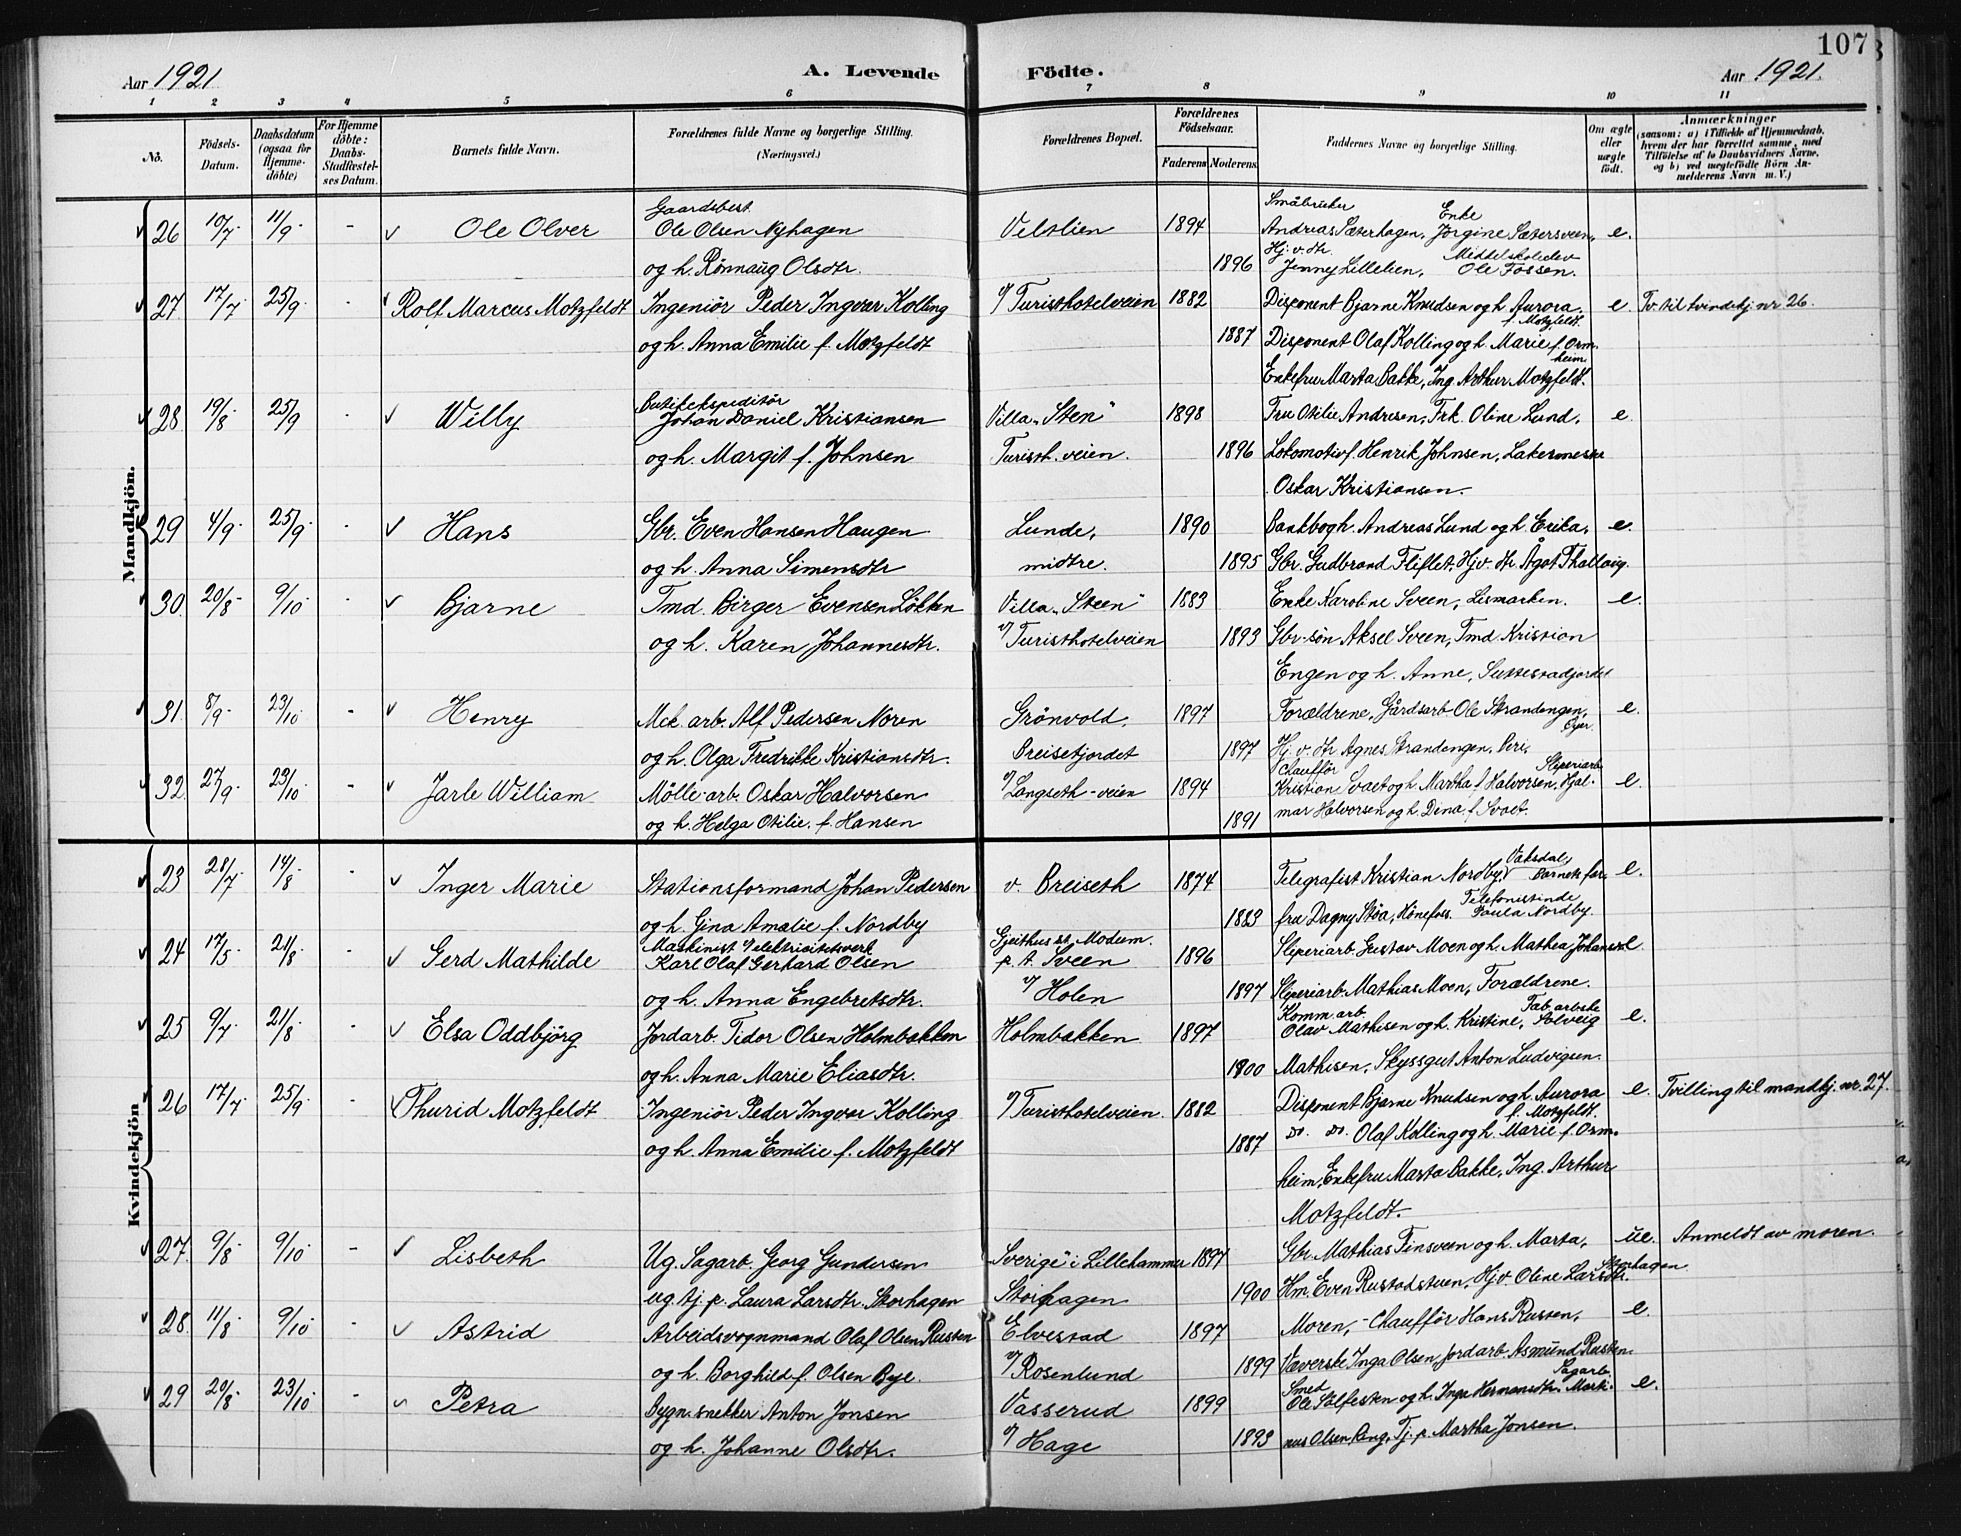 107
Aar 1921 A. Levende Födte. Aar 1921.
1 2 3 4 5 6 7 8 9 10 11
No. Födsels-Datum. Daabsdatum (ogsaa for Hjemme-döbte) For Hjemme döbte: Daabs-Stadfæstel-ses Datum. Barnets fulde Navn. Forældrenes fulde Navne og borgerlige Stilling. (Næringsvei.) Forældrenes Bopæl. Forældrenes Födselsaar. Faderens Moderens Faddernes Navne og borgerlige Stilling. Om ægte eller uægte födt. Anmærkninger (saasom: a) i Tilfælde af Hjemmedaab, hvem der har forrettet samme, med Tilföielse af to Daabsvidners Navne, og b) ved uægtefödte Börn Anmelderens Navn m. V.)
Mandkjön.
Gaardsbest. Småbruker Enke
26 10/7 11/9 - Ole Olver Ole Olsen Nyhagen Velslien 1894 Andreas Sæterhagen, Jørgine Sætersveen, e.
Hj. v. dtr. Middelskoleelev
og h. Rönnaug Olsdtr. 1896 Jenny Lillelien, Ole Fossen.
27 17/7 25/9 - Rolf Marcus Motzfeldt Ingeniör Peder Ingvar Kolling v/ Turisthotelveien 1882 Disponent Bjarne Knudsen og h. Aurora e Tv. til kvindekj. nr 26.
f. Motzfeldt.
og h. Anna Emilie f. Motzfeldt 1887 Disponent Olaf Kolling og h. Marie f. Orm-
heim.
Enkefru Marta Bakke, Ing. Arthur Motzfeldt.
Butikekspeditör
28 19/8 25/9 - Willy Johan Daniel Kristiansen Villa "Sten" 1898 Fru Otilie Andresen, Frk. Oline Lund, e
og h. Margit f. Johnsen Turisth. veien. 1896 Lokomotivf. Henrik Johnsen, Lakermester
Oskar Kristiansen.
29 4/9 25/9 - Hans Gbr. Even Hansen Haugen Lunde, 1890 Bankbogh. Andreas Lund og h. Erika, e.
og h. Anna Simensdtr midtre. 1895 Gbr. Gudbrand Fliflet, Hj. v. dtr. Ågot Thallaug.
30. 20/8 9/10 - Bjarne Tmd. Birger Evensen Lökken Villa "Steen" 1883 Enke Karoline Sveen, Lismarken. e.
og h. Karen Johannesdtr. v/ Turisthotelveien 1893 Gbr-sön Aksel Sveen, Tmd Kristian
Engen og h. Anne, Suttestadjordet
31. 8/9 23/10 - Henry Mek. arb. Alf Pedersen Noren Grönvold, 1897 Forældrene, Gårdsarb. Ole Strandengen, e.
Öyer
og h. Olga Fredrikke Kristiansdtr. Breisetjordet 1897 Hj. v. dtr Agnes Strandengen,
Chaufför Sliperiarb.
32. 27/9 23/10 - Jarle William Mölle-arb. Oskar Halvorsen v/ Langseth-veien 1894 Kristian Svaet og h. Martha f. Halvorsen, Hjal- e.
og h. Helga Otilie f. Hansen 1891 mar Halvorsen og h. Dena f. Svaet.
Kvindekjön
Vaksdal,
23 28/7 14/8 - Inger Marie Stationsformand Johan Pedersen v. Breiseth 1874 Telegrafist Kristian Nordby, Barnets far, e.
Telefonistinde
og h. Gina Amalie f. Nordby 1883 fru Dagny Støa, Hönefos. Paula Nordby.
Maskinist v/ elektricitetsverk Gjeithus st. Modum.
24 17/5 21/8 - Gerd Mathilde Karl Olaf Gerhard Olsen p. t. Sveen 1896 Sliperiarb. Gustav Moen og h. Mathea Johansd. e
og h. Anna Engebretsdtr. v/ Holen 1897 Sliperiarb. Mathias Moen, Forældrene.
Komm. arb. Fab. arbske
25 9/7 21/8 - Elsa Oddbjörg Jordarb. Tidor Olsen Holmbakken Holmbakken 1897 Olav Mathisen og h. Kristine, Solveig e.
og h. Anna Marie Eliasdtr. 1900 Mathisen, Skyssgut Anton Ludvigsen.
26 17/7 25/9 - Thurid Motzfeldt Ingeniör Peder Ingvar Kolling v/ Turisthotelveien. 1882 Disponent Bjarne Knudsen og h. Aurora e. Tvilling til mandkj. nr. 27.
f. Motzfeldt.
og h. Anna Emilie f. Motzfeldt 1887 Do. Do. Olaf Kolling og h. Marie f. Orm-
heim, Enkefru Marta Bakke, Ing. Arthur
Motzfeldt.
27. 9/8 9/10 - Lisbeth Ug. Sagarb. Georg Gundersen Sverige" i Lillehammer 1897 Gbr. Mathias Finsveen og h. Marta, ue. Anmeldt av moren.
Storhagen
ug. tj. p. Laura Larsdtr. Storhagen Storhagen 1900 Hm. Even Rustadstuen, Hj. v. Oline Larsdtr.
28. 11/8 9/10 - Astrid Arbeidsvognmand Olaf Olsen Rusten Elvestad 1897 Moren, - Chaufför Hans Rusten, e.
og h. Borghild f. Olsen Bye. v/ Rosenlund 1899 Væverske Inga Olsen, Jordarb. Asmund Rusten.
Smed Sagarb.
29 20/8 23/10 - Petra Bygn. snekker Anton Jonsen Vasserud 1899 Ole Sölfesten og h. Inga Hermansdtr. Marti- e.
og h. Johanne Olsdtr. v/ Hage 1893 nus Olsen Eng, Tj. p. Martha Jonsen.